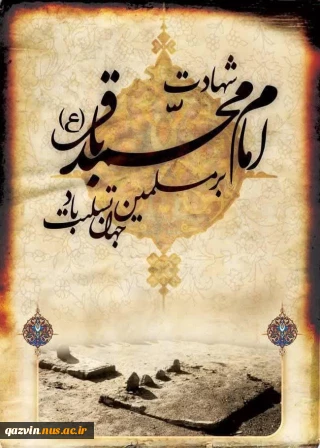 شهادت
امام محمد باقر (ع)
بر مسلمین
جهان تسلیت باد
qazvin.nus.ac.ir